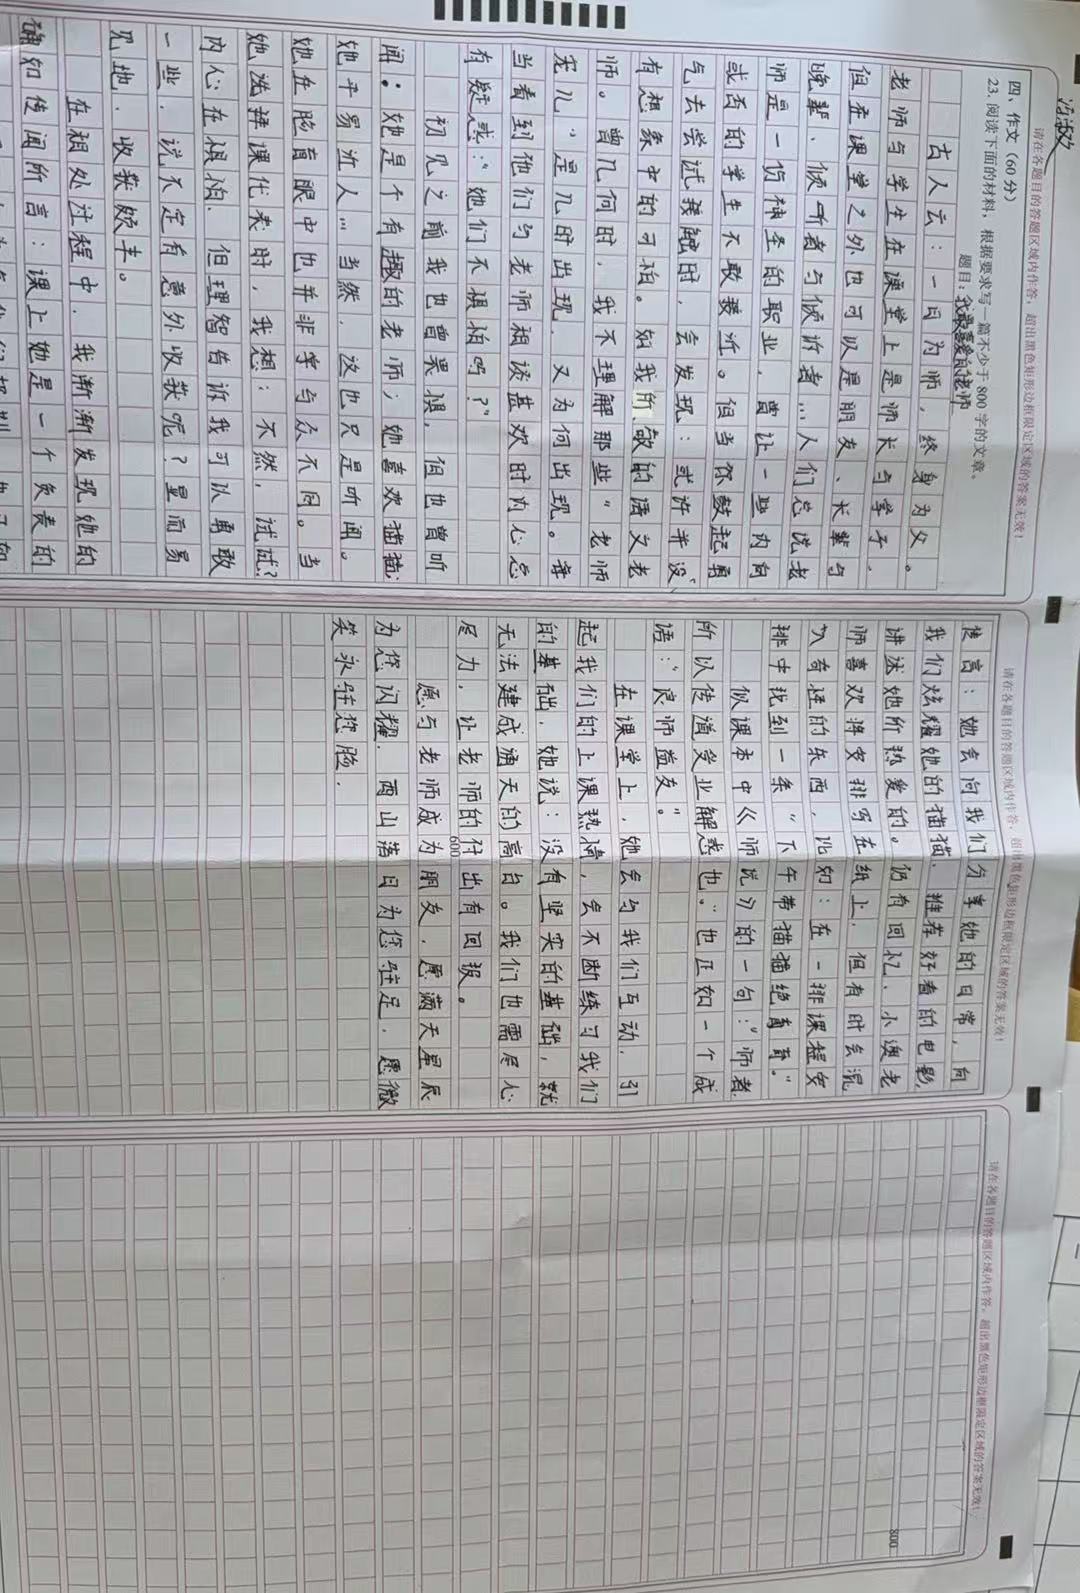 请在各题目的答题区域内作答，超出黑色矩形边框限定区域的答案无效！
四、作文（60分）
23. 阅读下面的材料，根据要求写一篇不少于800字的文章。
题目：我最喜爱的老师
古人云：一日为师，终身为父。
老师与学生在课堂上是师长与学子，
但在课堂之外也可以是朋友、长辈与
晚辈、倾听者与倾诉者…人们总说老
师是一份神圣的职业，曾让一些内向
或否的学生不敢要近。但当你鼓起勇
气去尝试接触时，会发现：或许并没
有想象中的可怕。如我所敬的语文老
师。曾几何时，我不理解那些“老师
宠儿”是几时出现，又为何出现。每
当看到他们与老师相谈甚欢时内心总
有疑惑：“她们不惧怕吗？”
初见之前我也曾畏惧，但也曾听
闻：她是个有趣的老师；她喜欢猫猫；
她平易近人…当然，这也只是听闻。
她在胎育眼中也并非学与众不同。当
她选择课代表时，我想：不然，试试？
内心在惧怕，但理智告诉我可以勇敢
一些，说不定有意外收获呢？显而易
见地，收获颇丰。
在相处过程中，我渐渐发现她的
确如传闻所言：课上她是一个负责的
请在各题目的答题区域内作答，超出黑色矩形边框限定区域的答案无效！
传言：她会向我们分享她的日常，向
我们炫耀她的猫猫，推荐好看的电影，
讲述她所热爱的。仍有回忆，小澳老
师喜欢将安排写在纸上，但有时会混
入奇怪的东西，比如：在一排课程安
排中找到一条“下午带猫猫绝育育。”
似课本中《师说》的一句：“师者
所以传道受业解惑也。”也正如一个成
语：“良师益友”。
在课堂上，她会与我们互动，引
起我们的上课热情，会不断练习我们
的基础，她说：没有坚实的基础，就
无法建成通天的高台。我们也需尽心
尽力，让老师的付出有回报。
600
愿与老师成为朋友，愿满天星辰
为您闪耀，西山落日为您驻足，愿微
笑永驻您脸．
请在各题目的答题区域内作答，超出黑色矩形边框限定区域的答案无效！
800